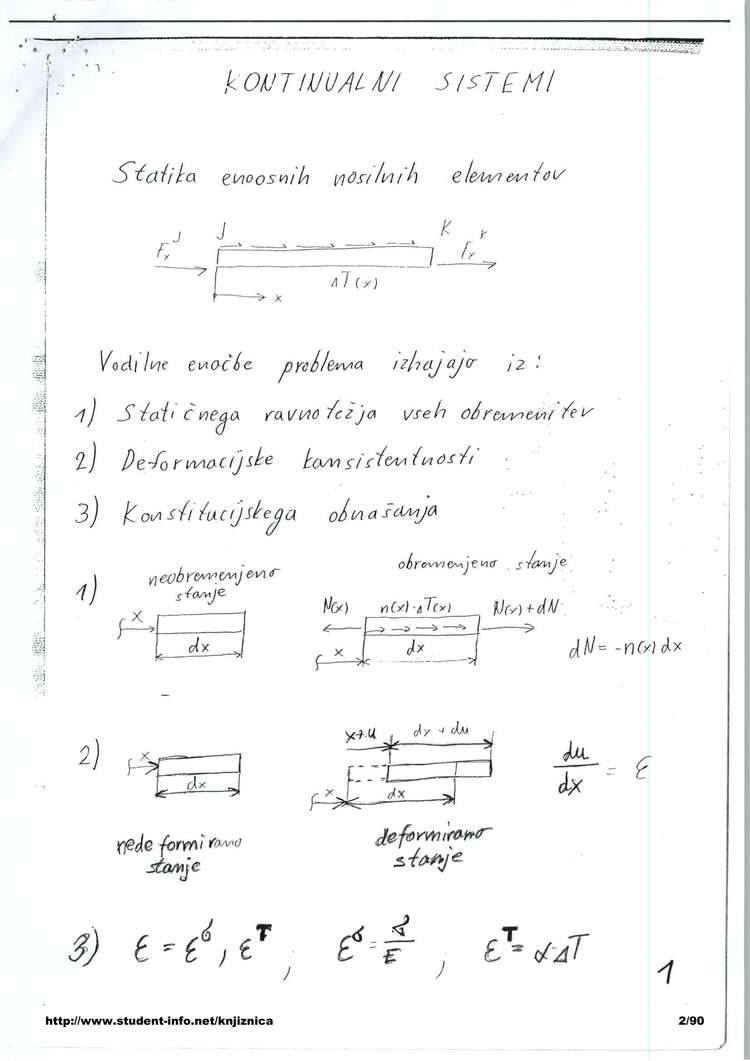 KONTINUALNI SISTEMI
Statika enoosnih nosilnih elementov
J K
F_x^J F_x^K
ΔT(x)
x
Vodilne enačbe problema izhajajo iz:
1) Statičnega ravnotežja vseh obremenitev
2) Deformacijske konsistentnosti
3) Konstitucijskega obnašanja
1) neobremenjeno stanje
obremenjeno stanje
x
dx
N(x) n(x)·ΔT(x) N(x)+dN
x dx
dN = -n(x)dx
2) x
dx
x+u dx+du
x dx
du/dx = ε
nedeformirano
stanje
deformirano
stanje
3) ε = ε^σ, ε^T ; ε^σ = σ/E ; ε^T = α·ΔT
1
http://www.student-info.net/knjiznica 2/90